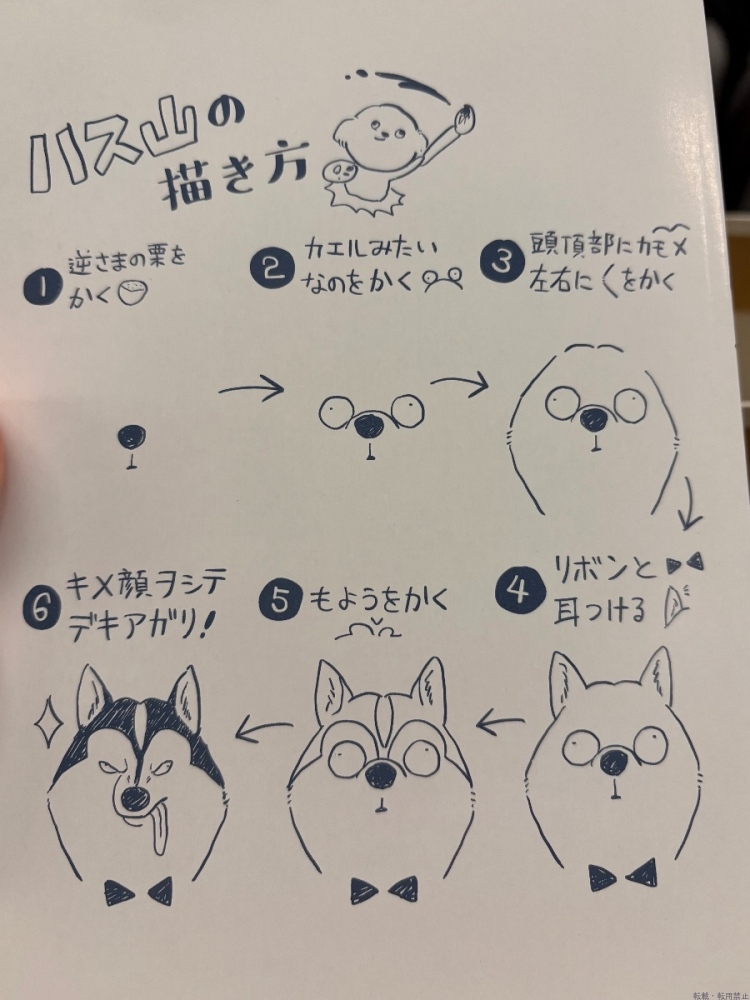 ハス山の
描き方
1 逆さまの栗を
かく
2 カエルみたい
なのをかく
3 頭頂部にカモメ
左右に〈をかく
4 リボンと
耳つける
5 もようをかく
6 キメ顔ヲシテ
デキアガリ!
転載・転用禁止